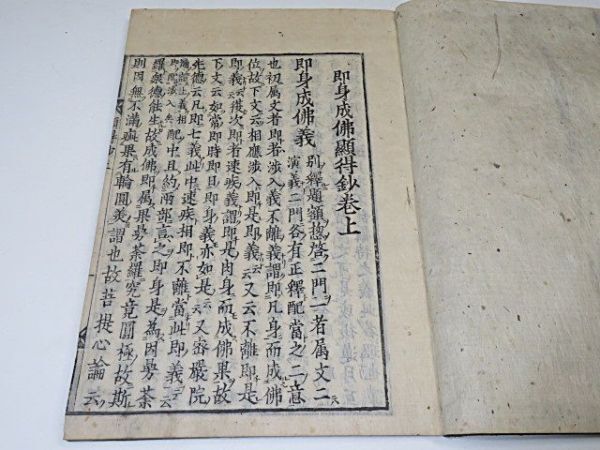 即身成佛顯得鈔卷上
即身成佛義 別釋題額 二門一者属文二
演義二門各有正釋配當之二意
也初属文者即者涉入義不離義謂即凡身而成佛
位故下文云相應涉入即是即義云又云不離即是
即義云 次即者速疾義謂即是肉身而成佛果故
下文云如當時即日即身義亦如是云又密嚴院
先德云凡即七義此中速疾相即不離當此即義云
配中且約兩部言之即身是為因曼荼
羅 德能生故成佛即属果曼荼羅究竟圓極故斯
則因無不滿 果有輪圓 謂也故菩提心論云